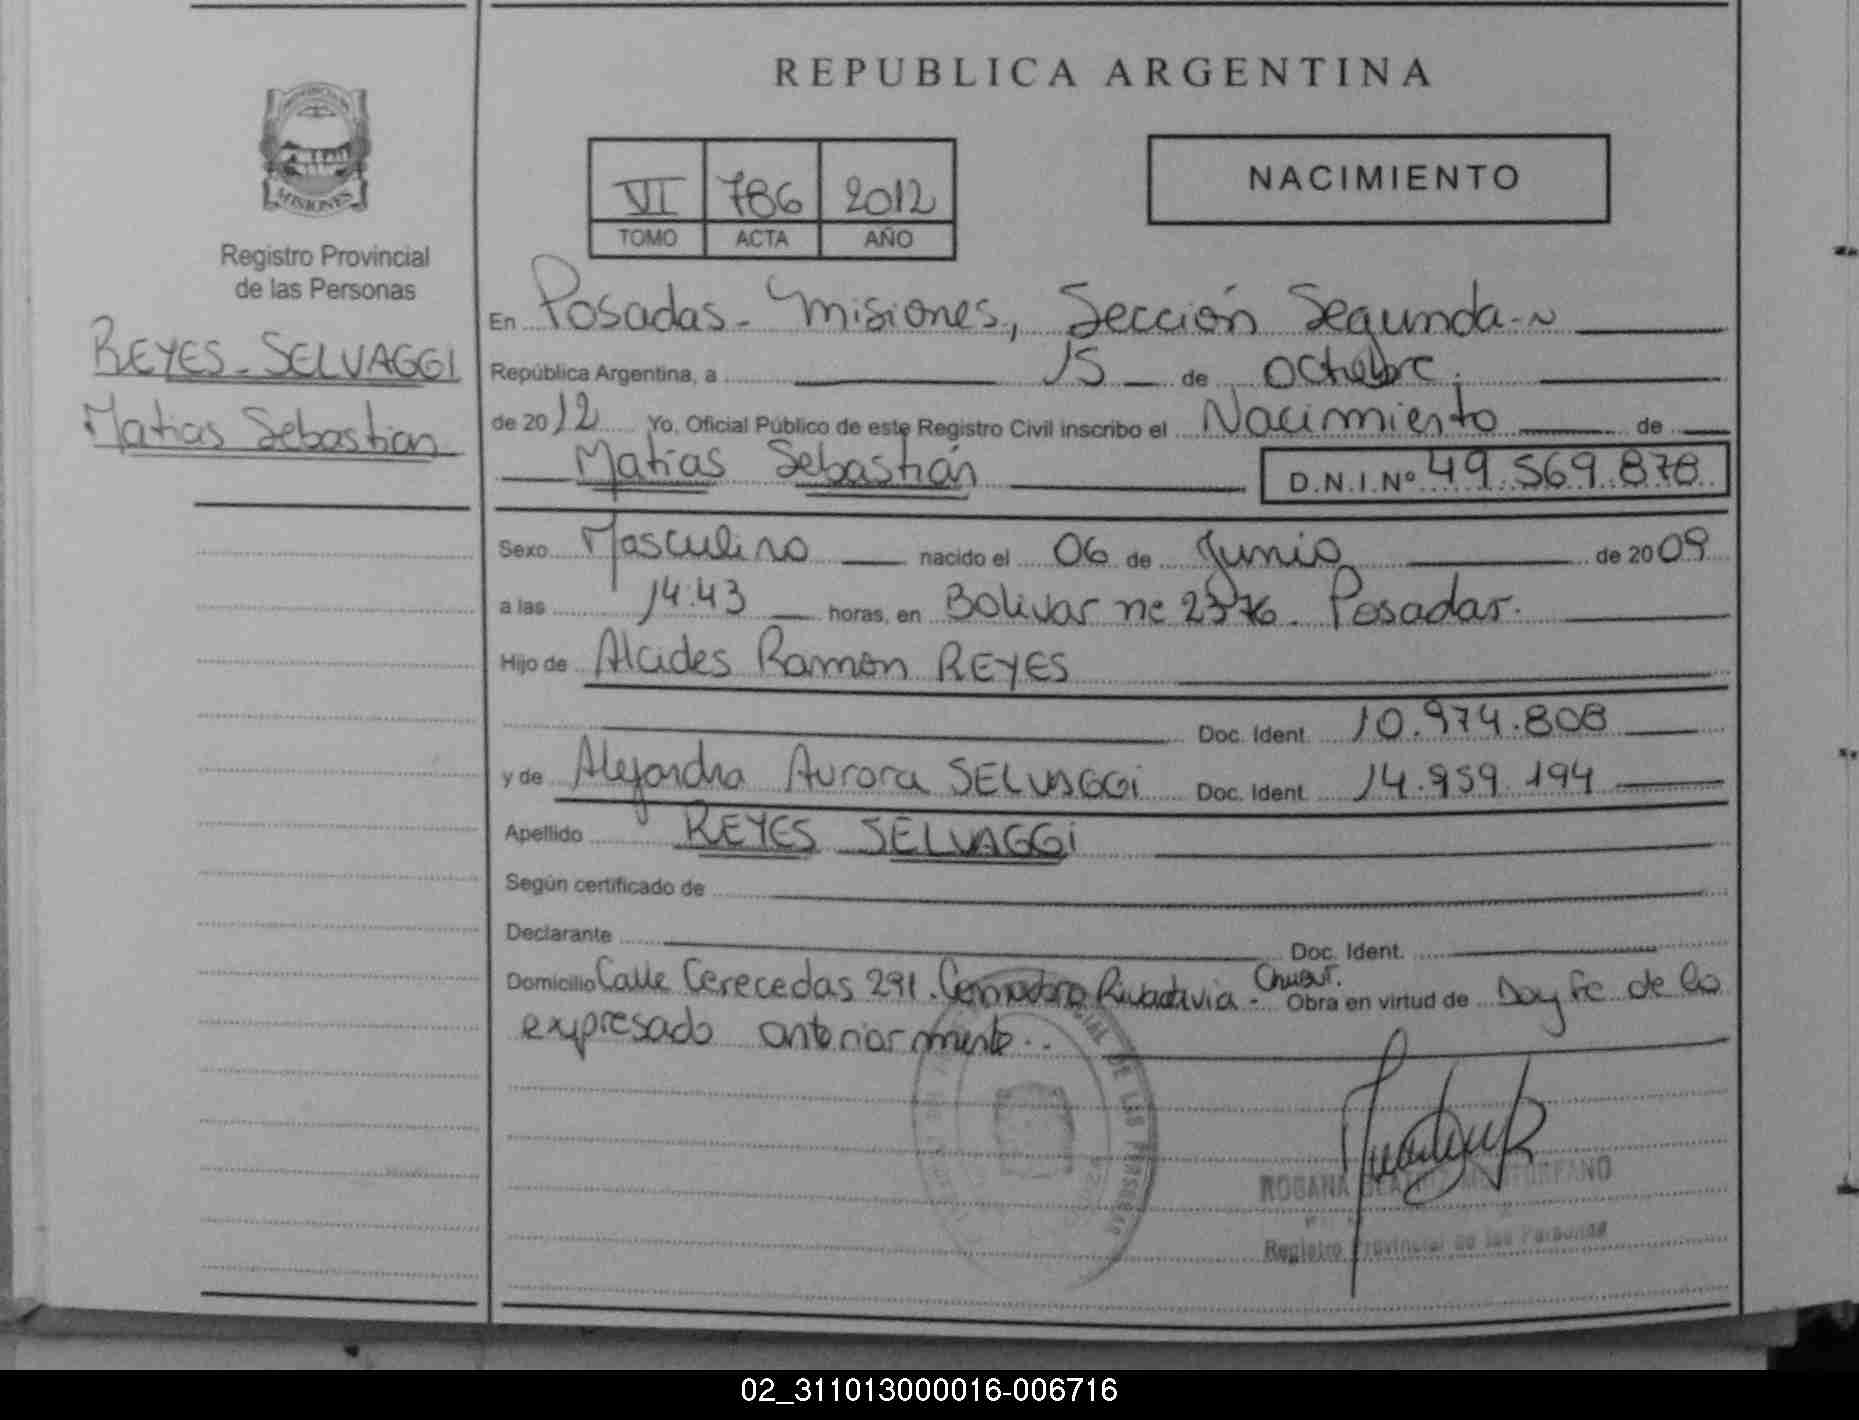 REPUBLICA ARGENTINA
PROVINCIA DE
MISIONES
Registro Provincial
de las Personas
REYES - SELVAGGI
Matias Sebastian
VI 786 2012
TOMO ACTA AÑO
NACIMIENTO
En Posadas - Misiones, Sección Segunda
República Argentina, a 15 de octubre
de 2012 Yo, Oficial Público de este Registro Civil inscribo el Nacimiento de
Matías Sebastián D.N.I.Nº 49.569.878
Sexo Masculino nacido el 06 de Junio de 2009
a las 14:43 horas, en Bolivar nº 2376. Posadas.
Hijo de Alcides Ramon REYES
Doc. Ident. 10.974.808
y de Alejandra Aurora SELVAGGi Doc. Ident. 14.959.194
Apellido REYES SELVAGGi
Según certificado de
Declarante Doc. Ident.
Domicilio Calle Cerecedas 291. Comodoro Rivadavia - Chubut. Obra en virtud de Doy fe de lo
expresado anteriormente..
DE LAS PERSONAS
ROSANA
Registro Provincial de las Personas
02_311013000016-006716